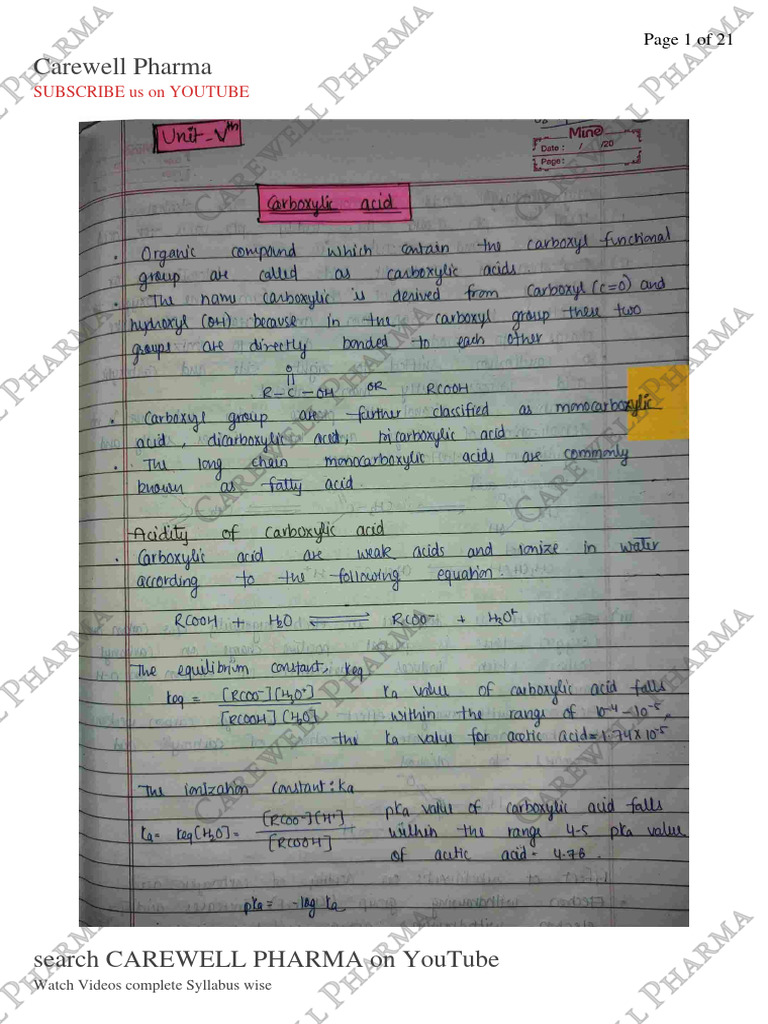 Page 1 of 21
Carewell Pharma
SUBSCRIBE us on YOUTUBE
Unit-Vth
Mine
Date : / /20
Page:
Carboxylic acid
• Organic compound which contain the carboxyl functional
group are called as carboxylic acids
• The name carboxylic is derived from carboxyl (C=O) and
hydroxyl (OH) because in the carboxyl group these two
groups are directly bonded to each other
O
||
R-C-OH OR RCOOH
• Carboxyl group are further classified as monocarboxylic
acid, dicarboxylic acid, tricarboxylic acid
• The long chain monocarboxylic acids are commonly
known as fatty acid.
Acidity of carboxylic acid
• Carboxylic acid are weak acids and ionize in water
according to the following equation.
RCOOH + H2O ⇌ RCOO- + H3O+
The equilibrium constant, keq
keq = [RCOO-][H3O+] / [RCOOH] [H2O]
ka value of carboxylic acid falls
within the range of 10-4 - 10-5,
the ka value for acetic acid = 1.74 x 10-5
The ionization constant : ka
ka = keq [H2O] = [RCOO-][H+] / [RCOOH]
pka value of carboxylic acid falls
within the range 4-5 pka value
of acetic acid - 4.76.
pka = -log ka
search CAREWELL PHARMA on YouTube
Watch Videos complete Syllabus wise
CAREWELL PHARMA